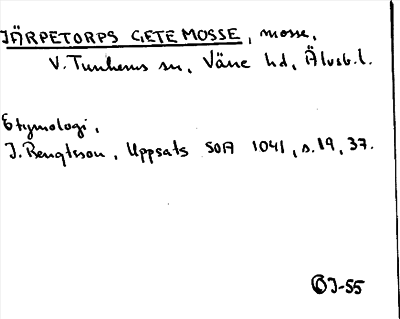 JÄRPETORPS GETEMOSSE, mosse,
V. Tunhems sn, Väne hd, Älvsb. l.
Etymologi,
J. Bengtsson, Uppsats SOA 1041, s. 19, 37.
BJ-55